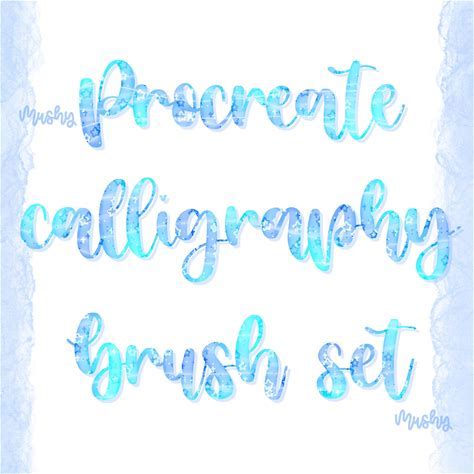 Procreate
Mushy
calligraphy
brush set
Mushy